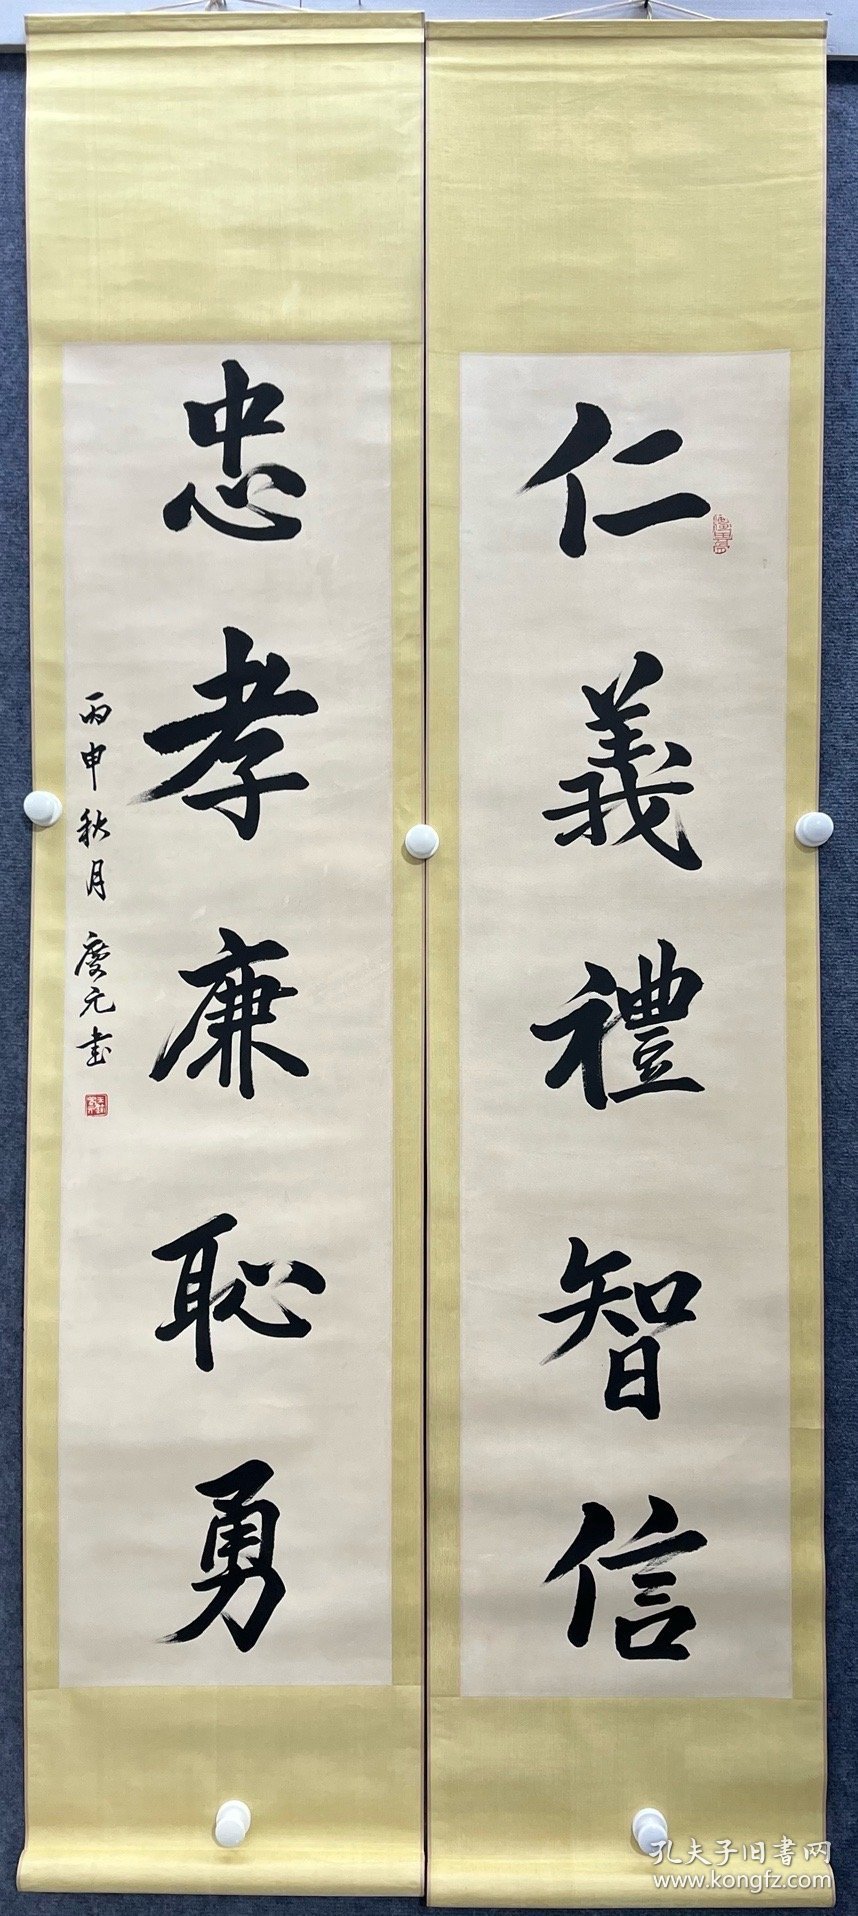 仁義禮智信
忠孝廉恥勇
丙申秋月慶元書
孔夫子旧書网
www.kongfz.com